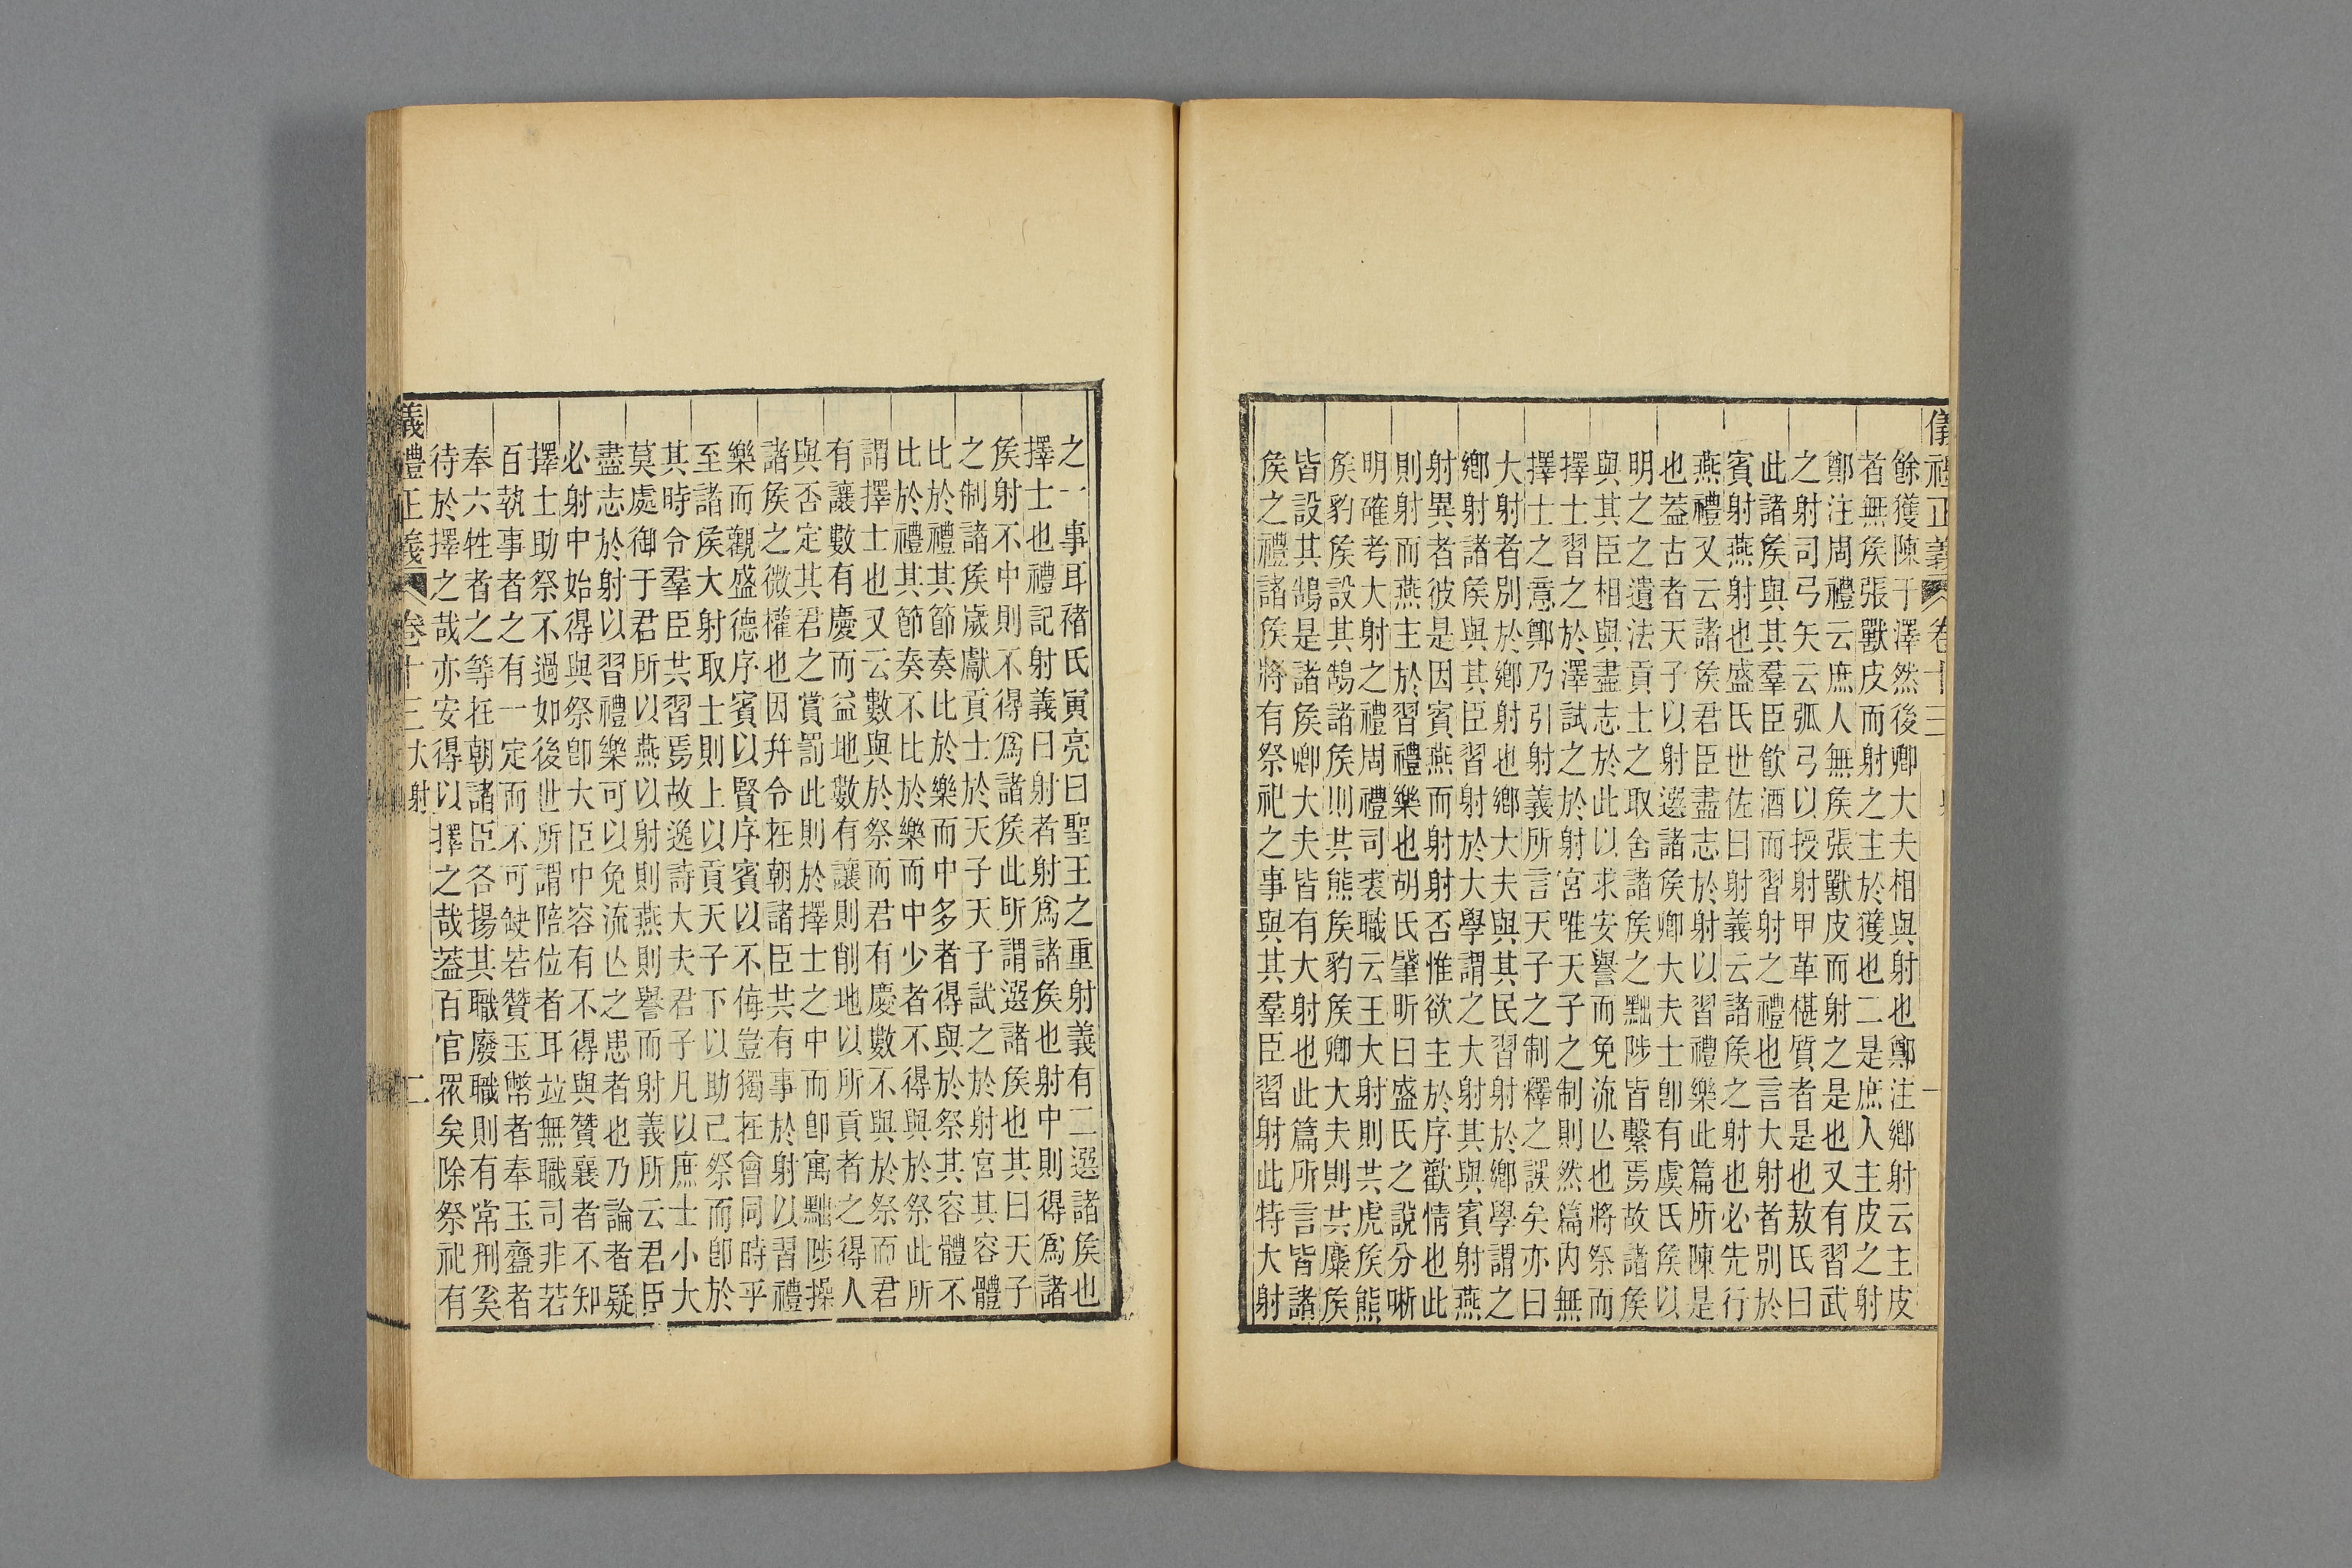 儀禮正義 卷十三
餘獲陳于澤然後卿大夫相與射也鄭注鄉射云主皮
者無矦張獸皮而射之主於獲也二是庶人主皮之射
鄭注周禮云庶人無矦張獸皮而射之是也又有習武
之射司弓矢云弧弓以授射甲革椹質者是也敖氏曰
此諸矦與其羣臣飮酒而習射之禮也言大射者別於
賓射燕射也盛氏世佐曰射義云諸矦之射也必先行
燕禮又云諸矦君臣盡志於射以習禮樂此篇所陳是
也葢古者天子以射選諸矦卿大夫士卽有虞氏矦以
明之之遺法貢士之取舍諸矦之黜陟皆繫焉故諸矦
與其臣相與盡志於此以求安譽而免流亾也將祭而
擇士習之於澤試之於射宮唯天子之制則然篇內無
擇士之意鄭乃引射義所言天子之制釋之誤矣亦曰
大射者別於鄉射也鄉大夫與其民習射於鄉學謂之
鄉射諸矦與其臣習射於大學謂之大射其與賓射燕
射異者彼是因賓燕而射射否惟欲主於序歡情也此
則射而燕主於習禮樂也胡氏肇昕曰盛氏之說分晰
明確考大射之禮周禮司裘職云王大射則共虎矦熊
矦豹矦設其鵠諸矦則共熊矦豹矦卿大夫則共麋矦
皆設其鵠是諸矦卿大夫皆有大射也此篇所言皆諸
矦之禮諸矦將有祭祀之事與其羣臣習射此特大射
之一事耳褚氏寅亮曰聖王之重射義有二選諸矦也
擇士也禮記射義曰射者射爲諸矦也射中則得爲諸
矦射不中則不得爲諸矦此所謂選諸矦也其曰天子
之制諸矦歲獻貢士於天子天子試之於射宮其容體
比於禮其節奏比於樂而中多者得與於祭其容體不
比於禮其節奏不比於樂而中少者不得與於祭此所
謂擇士也又云數與於祭而君有慶數不與於祭而君
有讓數有慶而益地數有讓則削地以所貢者之得人
與否定其君之賞罰此則於擇士之中而卽寓黜陟操
諸矦之微權也因幷令在朝諸臣共有事於射以習禮
樂而觀盛德序賓以賢序賓以不侮豈獨在會同時乎
至諸矦大射取士則上以貢天子下以助己祭而卽於
其時令羣臣共習焉故逸詩大夫君子凡以庶士小大
莫處御于君所以燕以射則燕則譽而射義所云君臣
盡志於射以習禮樂可以免流亾之患者也乃論者疑
必射中始得與祭卽大臣中容有不得與贊襄者不知
擇士助祭不過如後世所謂陪位者耳竝無職司非若
百執事者之有一定而不可缺若贊玉幣者奉玉齍者
奉六牲者之等在朝諸臣各揚其職廢職則有常刑奚
待於擇之哉亦安得以擇之哉葢百官眾矣除祭祀有
義禮正義 卷十三 大射 二